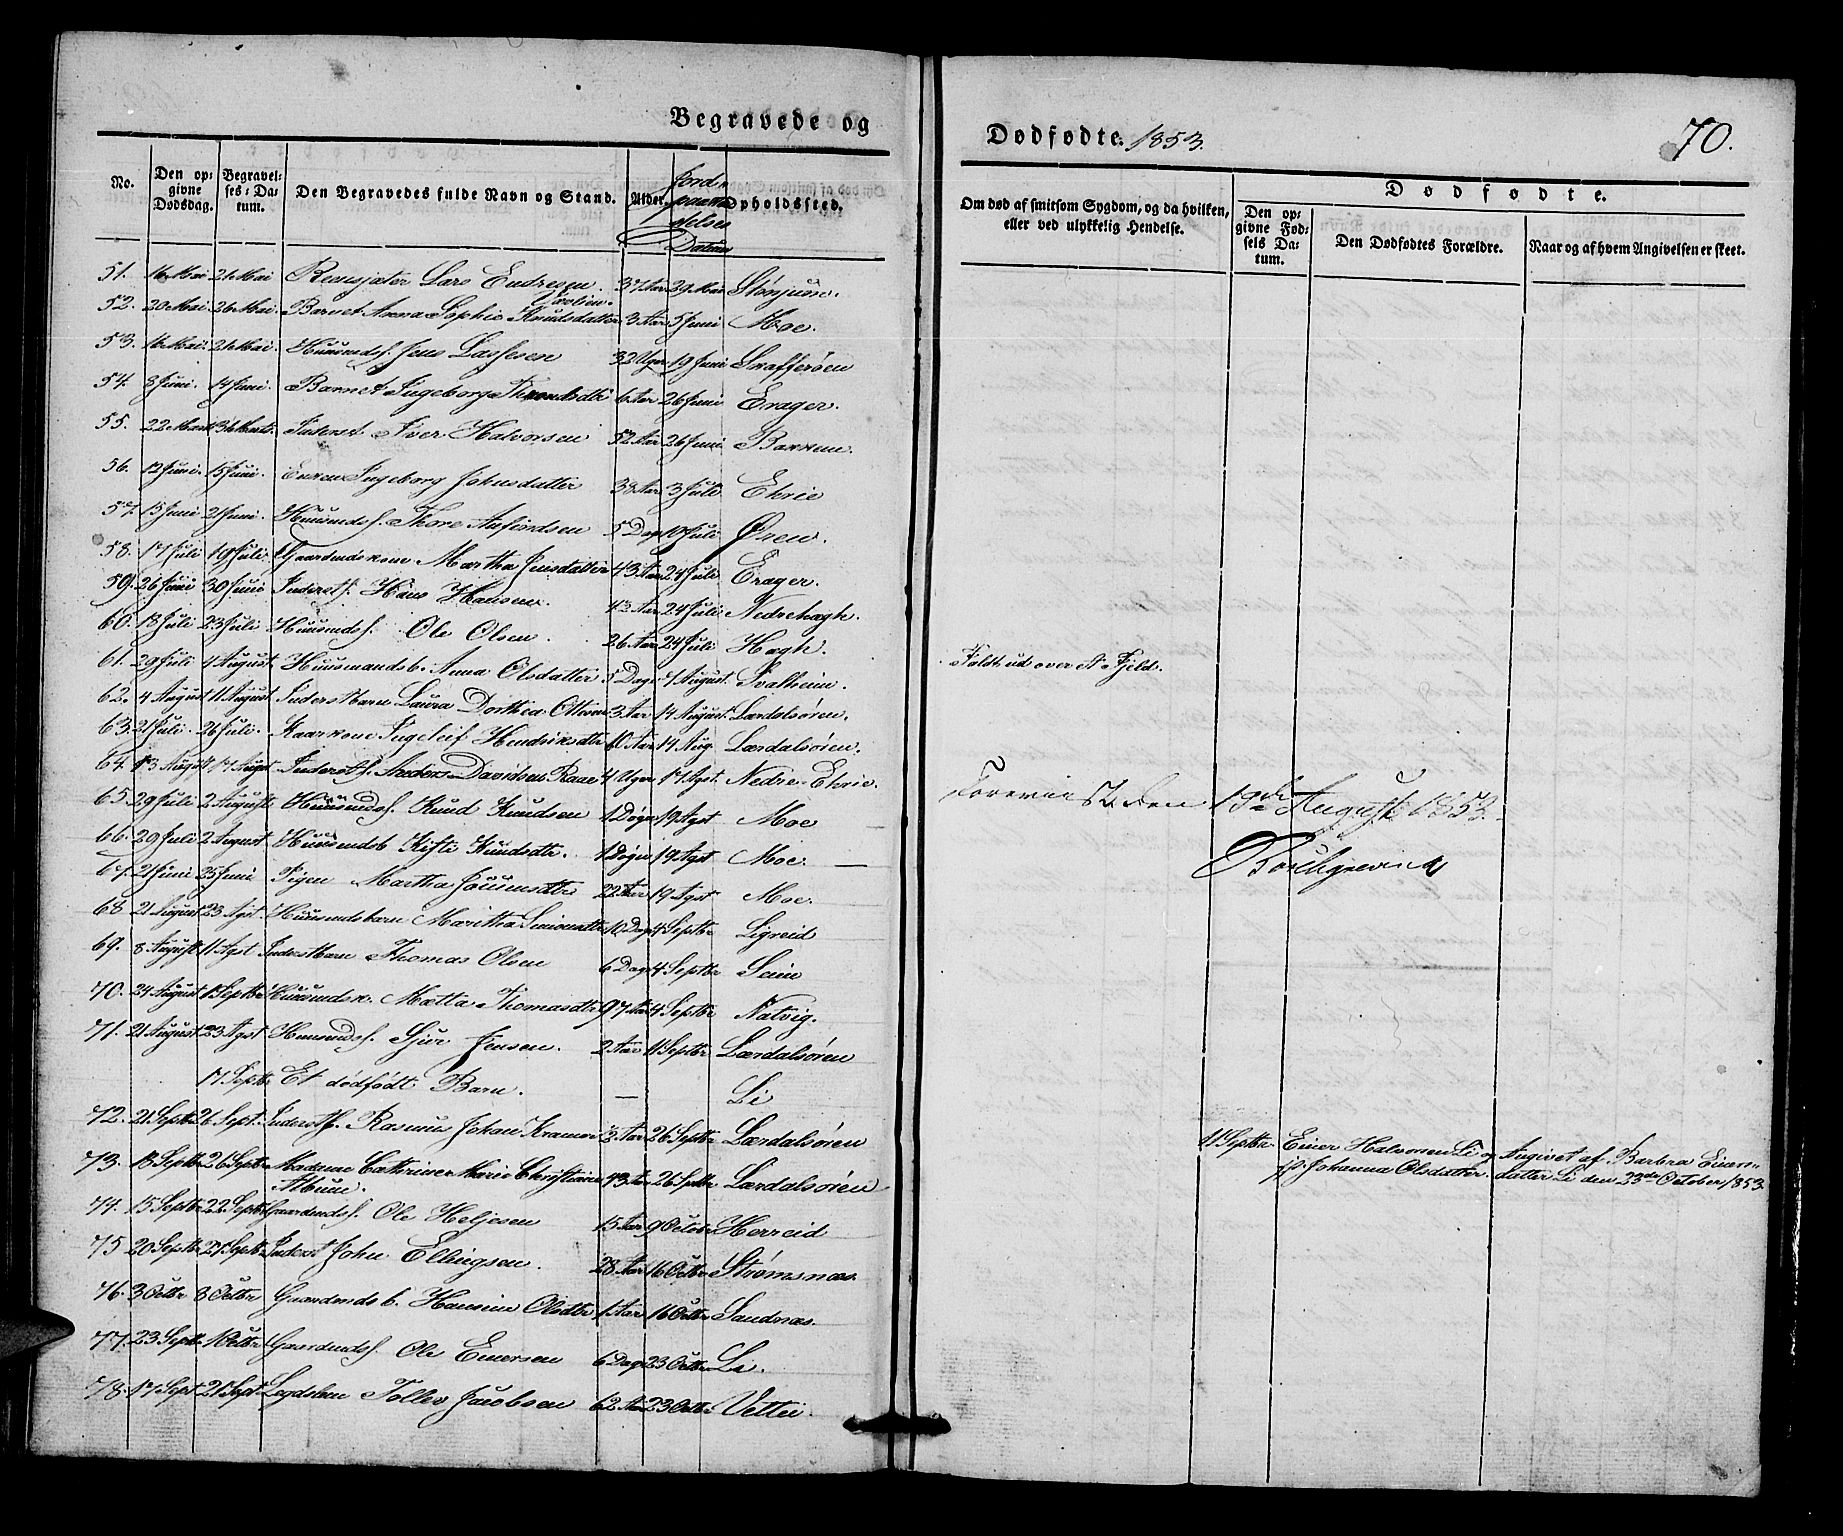 Begravede og
Dødfødte. 1853.
70.
No.
Den opgivne Dødsdag.
Begravelses-Datum.
Den Begravedes fulde Navn og Stand.
Alder.
Jordpaakastelses Datum
Opholdssted.
Om død af smitsom Sygdom, og da hvilken, eller ved ulykkelig Hendelse.
Dødfødte.
Den opgivne Fødsels Datum.
Den Dødfødtes Forældre.
Naar og af hvem Angivelsen er skeet.
51. 16 Mai 21 Mai Lars Endresen 37 Aar 29 Mai
52. 20 Mai 26 Mai. Barnet Anna Sophie Knudsdatter 3 Aar 5 Juni Moe.
53. 16 Mai. 21 Mai. Huusmdsf. Jens Lassesen 32 Uger 19 Juni
54. 3 Juni. 14 Juni. Barnet Ingeborg Throndsdtr 6 Aar 26 Juni Erager.
55. 22 Marts 31 Marts. Inderst Iver Halvorsen 52 Aar 26 Juni
56. 12 Juni. 15 Juni. Enken Ingeborg Johnsdatter 3 Juli Ehrie
57. 15 Juni 21 Juni. Huusmdsf. Thore Anfindsen 5 Dage 10 Juli Øren.
58. 17 Juli 19 Juli. Gaardmdskone Martha Jensdatter 43 Aar 24 Juli Erager.
59. 26 Juni 30 Juni Inderstf. Hans Hansen. 24 Juli Nedrehagh.
60. 18 Juli 23 Juli Huusmdsf. Ole Olsen. 26 Aar 24 Juli Hagh.
61. 29 Juli 4 August. Huusmandsb. Anna Olsdatter. 5 Dage 7 August. Svalheim.
62. 4 August 11 August. Inderstbarn Laura Dorthea Ottesen 3 Aar 14 August. Lærdalsøren.
63. 21 Juli. 26 Juli. Kaarkone Ingeleif Hendriksdtr 14 Aug. Lærdalsøren.
64. 13 August 17 Augst. Inderstf. Anders Davidsen Raae 4 Uger 17 Agst. Nedre-Ehrie.
65. 29 Juli 2 August. Huusmdsf. Knud Knudsen 1 Døgn 19 Agst Moe
66. 29 Juli 2 August Huusmdsb Kisti Knudsdtr. 1 Døgn 19 Agst Moe.
67. 21 Juni 25 Juni Pigen Martha 22 Aar 19 Agst Moe.
68 21 August 23 Agst. Huusmdsbarn Maritha Simonsdtr 10 Dage 4 Septbr Ligreid
69. 8 August 11 Agst Inderstbarn Thomas Olsen 6 Dage 4 Septbr
70. 24 August 1 Septbr Huusmdsk. Mætta Thomasdtr 97 Aar 4 Septbr Natvig.
71. 21 August 23 Agst Huusmdsf. Sjur Jensen. 2 Aar 11 Septbr Lærdalsøren
17 Septbr Et dødfødt Barn. — Li
72. 21 Septbr 26 Sept. Inderstf. Rasmus Johan Kramer 2 Aar 26 Septbr Lærdalsøren
73. 18 Septbr 26 Septbr Madame Cathrine Marie Christiane Album. 26 Septbr Lærdalsøren
74. 15 Septbr 22 Septbr Gaardmdsf. Ole Heljesen 15 Aar 9 Octobr Horreid
75 20 Septbr 27 Septbr Inderst John Ellingsen. 28 Aar 16 Octbr Strømsnæs.
76. 3 Octbr 8 Octbr Gaardmdsb. Hansine Olsdtr 1 Aar 16 Octbr Sandnæs.
77. 23 Septbr 1 Octbr Gaardmdsf. Ole Einersen 6 Dage 23 Octbr Li.
78. 17 Sept 21 Sept Legdslem Tollev Jacobsen 62 Aar 23 Octbr Vettei.
Faldt ud over et Fjeld.
den 19de August 1853.
Borchgrevink
11 Septbr. Einer Halvorsen Li og Angivet af Barbra Einers-
Johanna Olsdatter. datter Li den 23de October 1853.